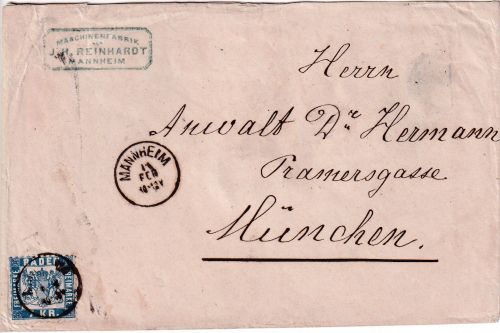 MASCHINENFABRIK
VON
J. H. REINHARDT
MANNHEIM
Herrn
Anwalt Dr Hermann
Pramersgasse
München.
MANNHEIM
FEB
BADEN
FREIMARKE
FREIMARKE
KR.